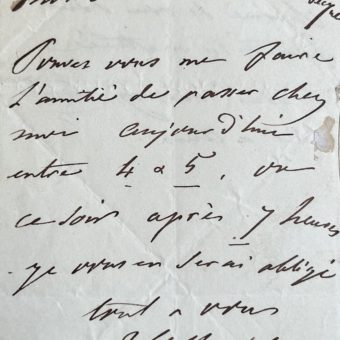 Pouvez vous me faire
l'amitié de passer chez
moi aujourd'hui
entre 4 & 5, ou
ce soir après 7 heures
je vous en serai obligé
tout a vous